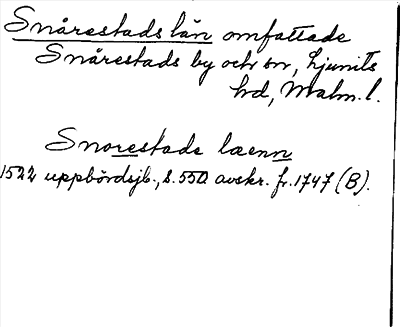 Snårestads län omfattade
Snårestads by och sn, Ljunits
hd, Malm. l.
Snorestade laenn
1522 uppbördsjb., s. 550 avskr. fr. 1747 (B).